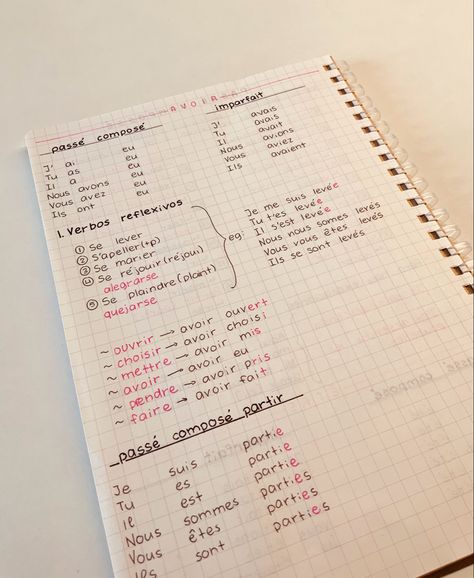 AVOIR
passé composé
J' ai eu
Tu as eu
Il a eu
Nous avons eu
Vous avez eu
Ils ont eu
imparfait
J' avais
Tu avais
Il avait
Nous avions
Vous aviez
Ils avaient
1. Verbos reflexivos
① Se lever
② S'apeller(+p)
③ Se marier
④ Se réjouir(réjoui)
alegrarse
⑤ Se plaindre(plaint)
quejarse
eg:
Je me suis levée
Tu t'es levée
Il s'est levée
Nous nous somes levés
Vous vous êtes levés
Ils se sont levés.
~ ouvrir → avoir ouvert
~ choisir → avoir choisi
~ mettre → avoir mis
~ avoir → avoir eu
~ prendre → avoir pris
~ faire → avoir fait
passé composé partir
Je suis partie
Tu es partie
Il est partie
Nous sommes parties
Vous êtes parties
Ils sont parties